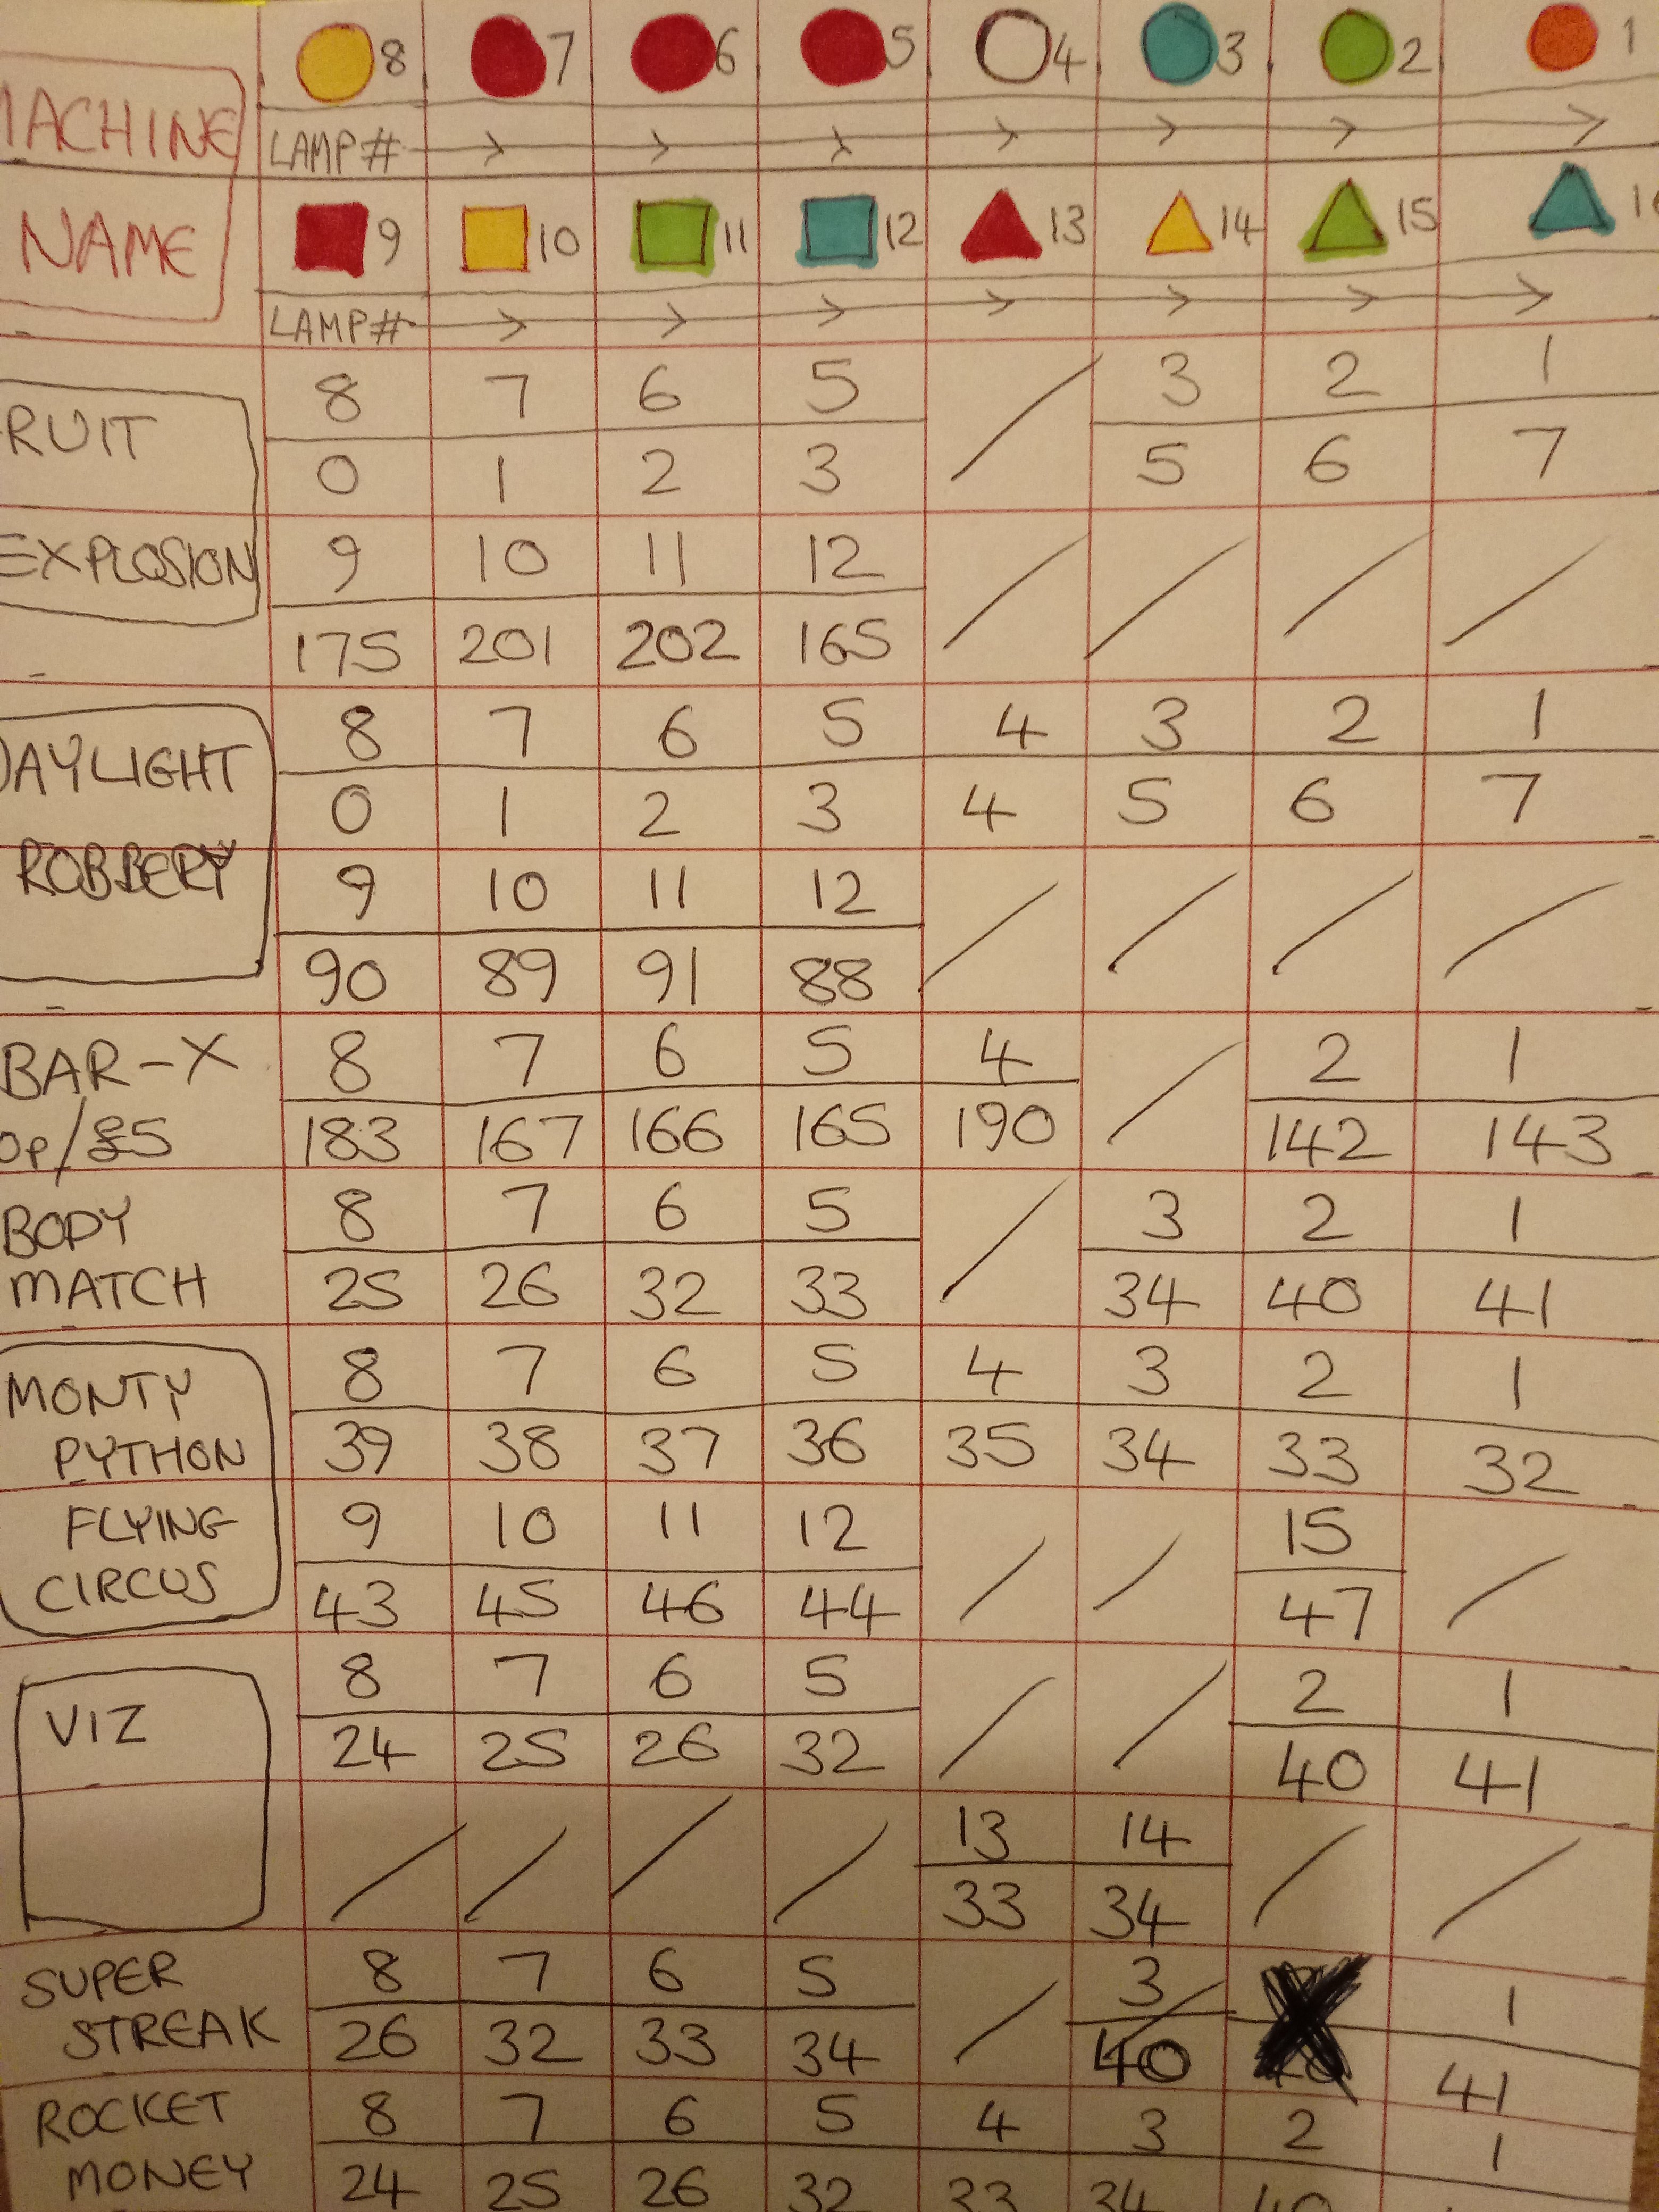 8 7 6 5 4 3 2 1
MACHINE LAMP#
NAME 9 10 11 12 13 14 15
LAMP#
8 7 6 5 3 2 1
FRUIT
0 1 2 3 5 6 7
EXPLOSION 9 10 11 12
175 201 202 165
8 7 6 5 4 3 2 1
DAYLIGHT
0 1 2 3 4 5 6 7
ROBBERY 9 10 11 12
90 89 91 88
BAR-X 8 7 6 5 4 2 1
0p/£5 183 167 166 165 190 142 143
BODY 8 7 6 5 3 2 1
MATCH 25 26 32 33 34 40 41
MONTY 8 7 6 5 4 3 2 1
PYTHON 39 38 37 36 35 34 33 32
FLYING 9 10 11 12 15
CIRCUS 43 45 46 44 47
VIZ 8 7 6 5 2 1
24 25 26 32 40 41
13 14
33 34
SUPER 8 7 6 5 3 1
STREAK 26 32 33 34 40 41
ROCKET 8 7 6 5 4 3 2 1
MONEY 24 25 26 32 33 34 40